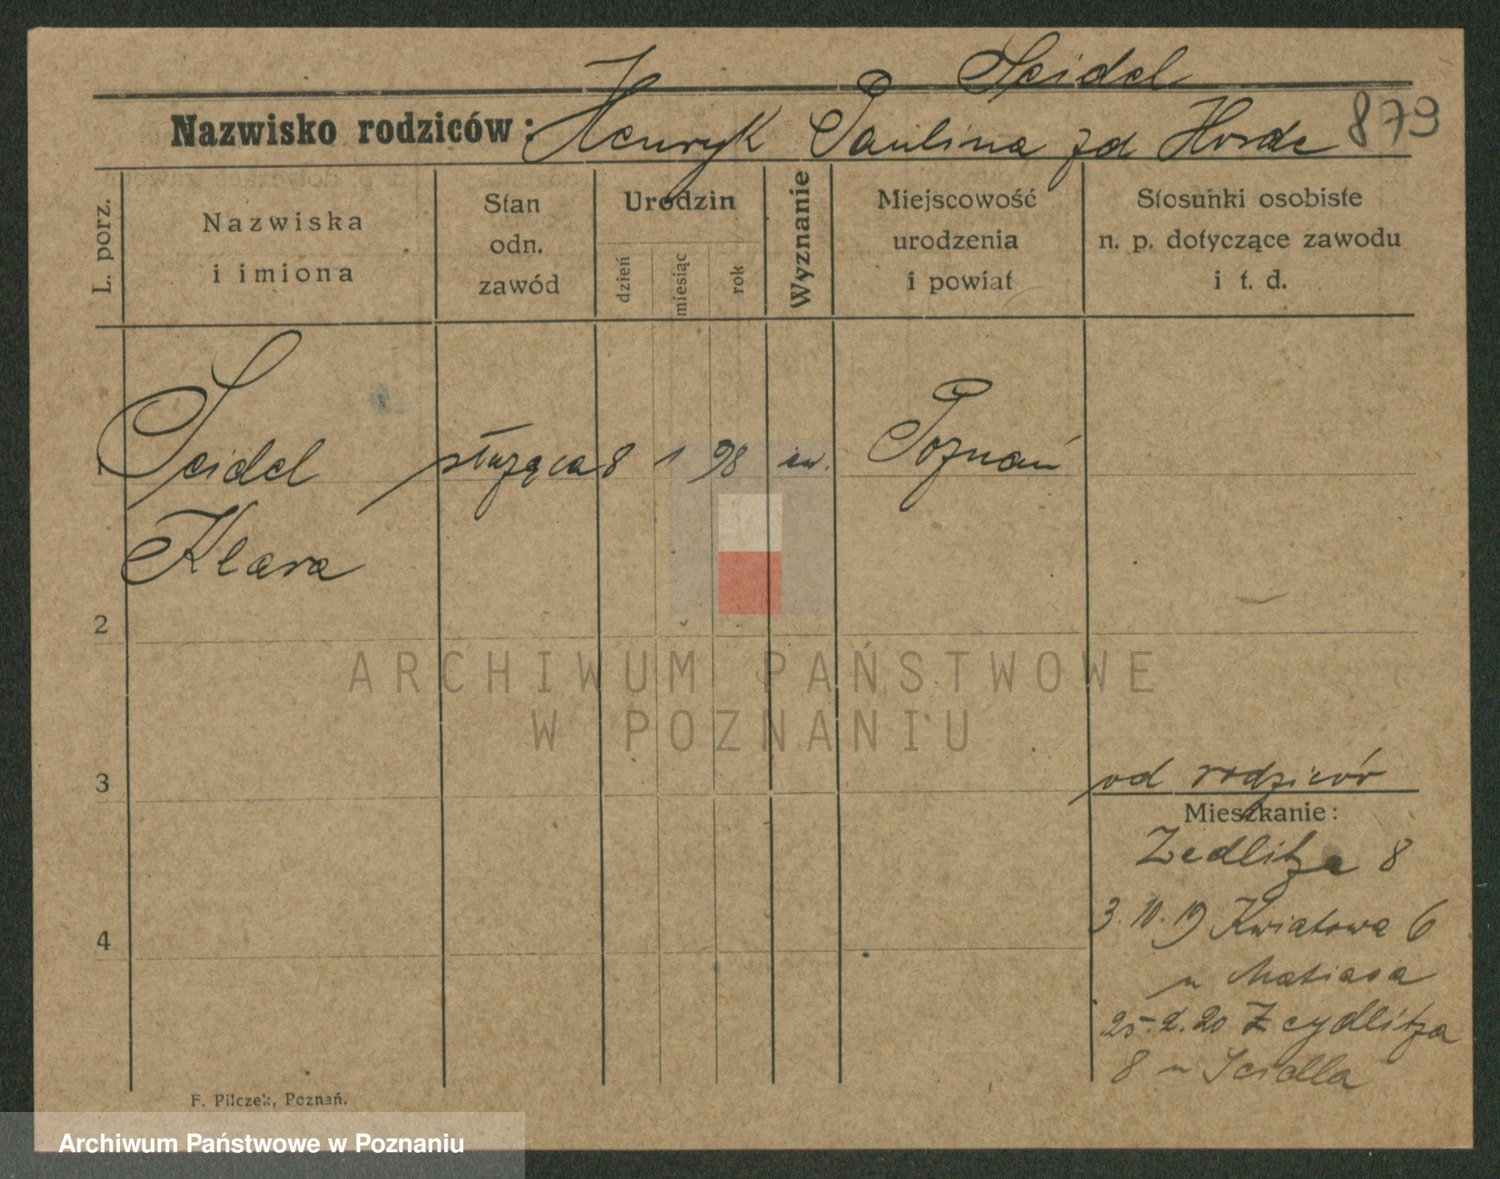 Seidel
Nazwisko rodziców: Henryk Paulina zd Horde 879
L. porz.
Nazwiska
i imiona
Stan
odn.
zawód
Urodzin
dzień
miesiąc
rok
Wyznanie
Miejscowość
urodzenia
i powiat
Stosunki osobiste
n. p. dotyczące zawodu
i t. d.
1 Seidel służąca 8 1 98 ew. Poznań
Klara
2
3
4
od rodziców
Mieszkanie:
Zedlitza 8
3. 10. 19 Kwiatowa 6
u Matiasa
25. 2. 20 Zeydlitza
8 u Seidla
F. Pilczek, Poznań.
ARCHIWUM PAŃSTWOWE
W POZNANIU
Archiwum Państwowe w Poznaniu